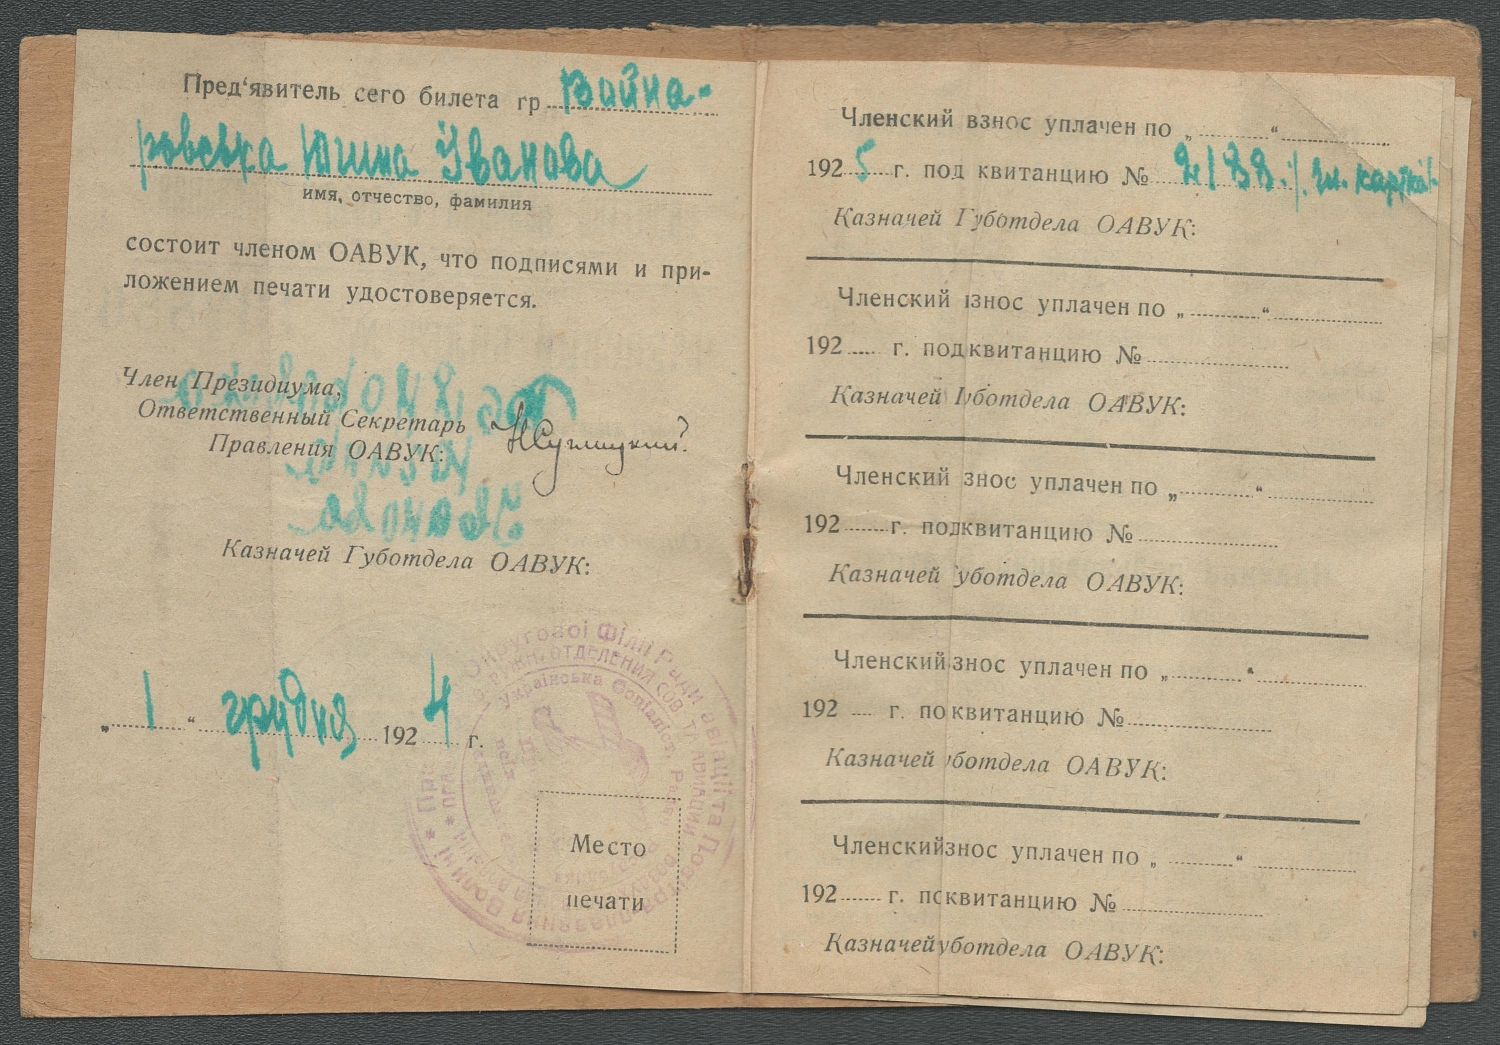 Пред‘явитель сего билета гр. Война-
ровська Юлина Іванова
имя, отчество, фамилия
состоит членом ОАВУК, что подписями и при-
ложением печати удостоверяется.
Член Президиума,
Ответственный Секретарь
Правления ОАВУК:
Казначей Губотдела ОАВУК:
„ 1 “ грудня 1924 г.
Место
печати
Округової Філії Ради авіації та Повітроплавання
Українська Соціаліст. Рад.
Членский взнос уплачен по „ “
1925 г. под квитанцию № 2188.
Казначей Губотдела ОАВУК:
Членский взнос уплачен по „ “
192 г. под квитанцию №
Казначей Губотдела ОАВУК:
Членский знос уплачен по „ “
192 г. подквитанцию №
Казначей уботдела ОАВУК:
Членский знос уплачен по „ “
192 г. по квитанцию №
Казначей уботдела ОАВУК:
Членский знос уплачен по „ “
192 г. по квитанцию №
Казначей уботдела ОАВУК: